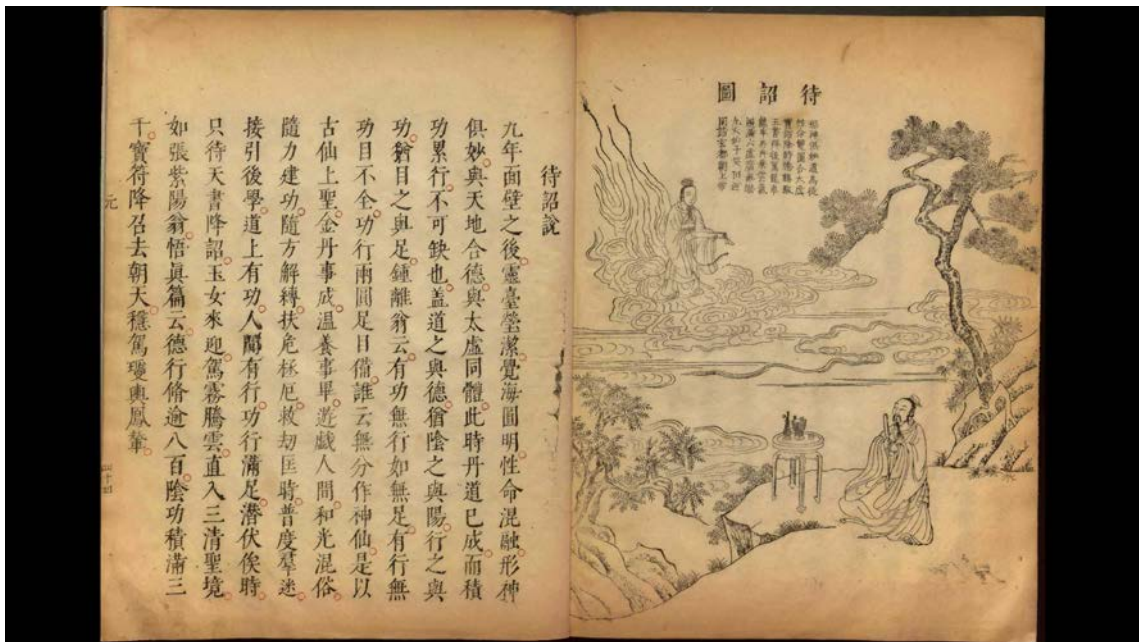 待詔圖
待詔說
九年面壁之後靈臺瑩潔覺海圓明性命混融形神
俱妙與天地合德與太虛同體此時丹道已成而積
功累行不可缺也蓋道之與德猶陰之與陽行之與
功猶目之與足鍾離翁云有功無行如無足有行無
功目不全功行兩圓足目備誰云無分作神仙是以
古仙上聖金丹事成溫養事畢遊戲人間和光混俗
隨力建功隨方解縛扶危拯厄救劫匡時普度羣迷
接引後學道上有功人間有行功行滿足潛伏俟時
只待天書降詔玉女來迎駕霧騰雲直入三清聖境
如張紫陽翁悟眞篇云德行脩逾八百陰功積滿三
千寶符降召去朝天穩駕瓊輿鳳輦
元
四十四